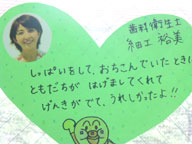 歯科衛生士
細工 裕美
しっぱいをして、おちこんでいたときに
ともだちが はげましてくれて
げんきがでて、うれしかったよ!!